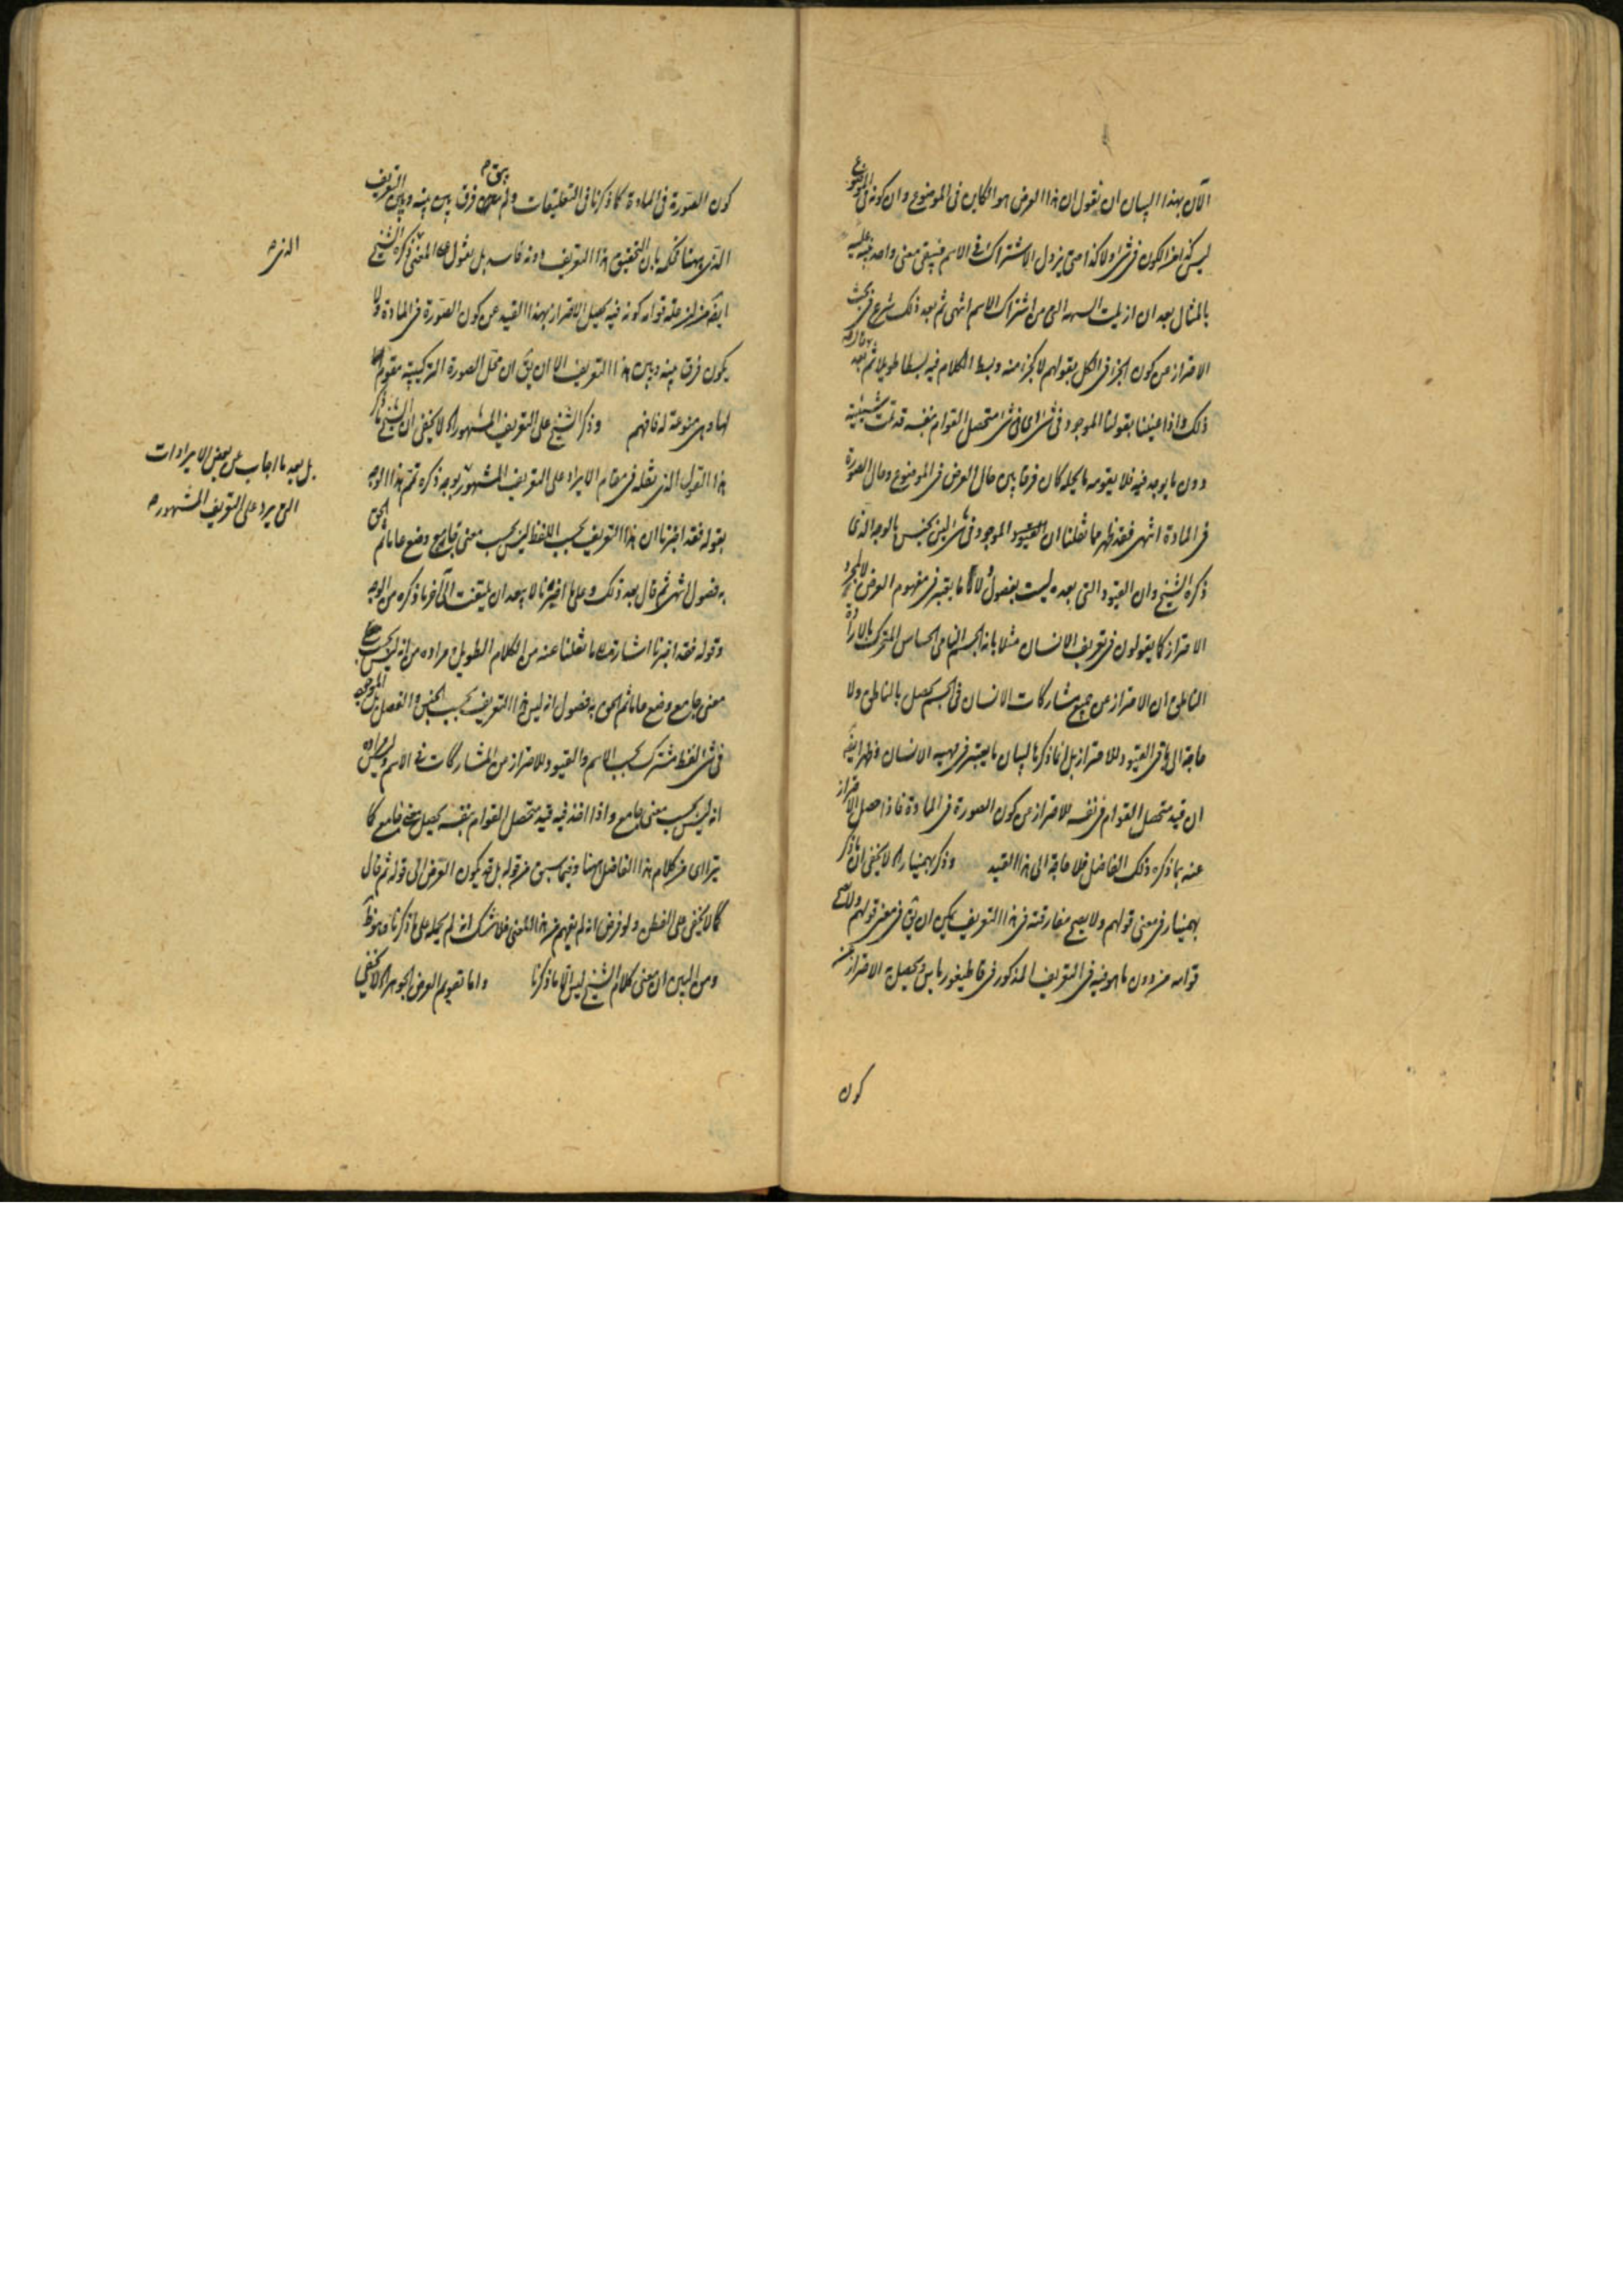 الآن بهذا البيان ان نقول ان هذا العرض هو الكاين فى الموضوع وان كونه فى الموضوع
ليس كذا من الكون فى شئ ولا كذا حتى يزول الاشتراك فى الاسم فيبقى معنى واحد فنبه عليه
بالمثال بعد ان ازيلت الشبهة التى من اشتراك الاسم انتهى ثم بعد ذلك شرع فى بحث
الاحتراز من كون الجزء فى الكل بقولهم لا كجزء منه وبسط الكلام فيه بسطا طويلا ثم قال بعد
ذلك واذا عنينا بقولنا الموجود فى شئ اى فى شئ متحصل القوام بنفسه قد تمت شيئيته
دون ما يوجد فيه فلا يقومه ما يحله كان فرقا بين حال العرض فى الموضوع وحال الصورة
فى المادة انتهى فقد ظهر مما نقلنا ان الموجود فى شئ ليس بجنس بالوجه الذى
ذكره الشيخ وان القيود التى بعده ليست بفصول لا مما يعتبر فى مفهوم العرض لا لمجرد
الاحتراز كما يقولون فى تعريف الانسان مثلا بانه الجسم النامى الحساس المتحرك بالارادة
الناطق ان الاحتراز من جميع مشاركات الانسان فى الجسم يحصل بالناطق ولا
حاجة الى باقى القيود للاحتراز بل انما ذكرها لبيان ما يعتبر فى مهية الانسان وظهر ايضا
ان قيد متحصل القوام فى نفسه للاحتراز من كون الصورة فى المادة فاذا حصل الاحتراز
عنه بما ذكره ذلك الفاضل فلا حاجة الى هذا القيد وذكر بهمنيار اه لا يخفى ان ما ذكر
بهمنيار فى معنى قولهم ولا يصح مفارقته فى هذا التعريف يمكن ان يق فى معنى قولهم ولا يصح
قوامه من دون ما هو فيه فى التعريف المذكور فى قاطيغورياس ويحصل به الاحتراز عن
كون
كون الصورة فى المادة كما ذكرنا فى التعليقات ولم يبق فرق بين بينه وبين التعريف
الذى ههنا فحكمه بان التحقيق هذا التعريف دونه فاسد بل نقول المعنى ذكره الشيخ
الذى
ايضا من ان علة قوامه كونه فيه يحصل الاحتراز بهذا القيد عن كون الصورة فى المادة ولا
يكون فرقا بينه وبين هذا التعريف الا ان يق ان محل الصورة التركيبية مقوم لها
لها وهى منوعة له فافهم وذكر الشيخ على التعريف المشهور اه لا يخفى ان الشيخ ذكر
هذا القول الذى نقله فى مقام الايراد على التعريف المشهور بوجه ذكره ثم تمم هذا الوجه
بل بعد ما اجاب عن بعض الايرادات
التى يرد على التعريف المشهور
بقوله فقد اخبرنا ان هذا التعريف بحسب اللفظ ليس بحسب معنى جامع وضع عاما ثم الحق
به فصول انتهى ثم قال بعد ذلك وعلى ما اخبرنا لا يبعد ان يلتفت الى آخر ما ذكره من الوجه
وقوله فقد اخبرنا اشارة الى ما نقلنا عنه من الكلام الطويل ومراده من انه ليس بحسب
معنى جامع وضع عاما ثم الحق به فصول انه ليس هذا التعريف بحسب الجنس والفصل بل الموجود
فى شئ لفظ مشترك بحسب الاسم والقيود للاحتراز من المشاركات فى الاسم وليس مراده
انه ليس بحسب معنى جامع واذا اخذ فيه قيد متحصل القوام بنفسه يحصل معنى جامع كما
يتراءى من كلام هذا الفاضل ههنا وفيما سبق من قوله بل قد يكون العرض الى قوله ثم قال
كما لا يخفى على الفطن ولو فرض انه لم يفهم منه هذا المعنى فلا شك انه لم يحمله على ما ذكرنا
ومن البين ان معنى كلام الشيخ ليس الا ما ذكرنا واما تقويم العرض الجوهر اه لا يخفى